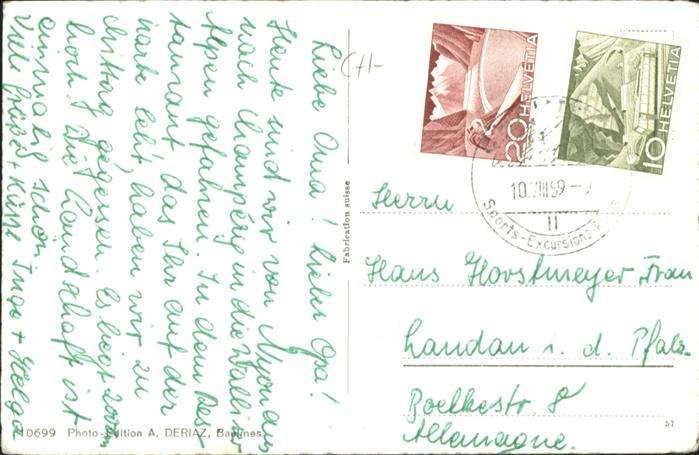 Liebe Oma! Lieber Opa!
Heute sind wir von Nyon aus
nach Champéry in die Walliser
Alpen gefahren. In dem Res-
taurant das Ihr auf der
Karte seht haben wir zu
Mittag gegessen. Es liegt 2000m
hoch! Die Landschaft ist
einmalig schön.
Viele Grüße + Küsse Ingo + Helga
CH-
Fabrication suisse
20 HELVETIA
10 HELVETIA
10.VIII.59-
11
Sports-Excursions
Herrn
Hans Horstmeyer Frau
Landau i. d. Pfalz
Boelkestr 8
Allemagne.
10699 Photo-Edition A. DERIAZ, Baulmes
57